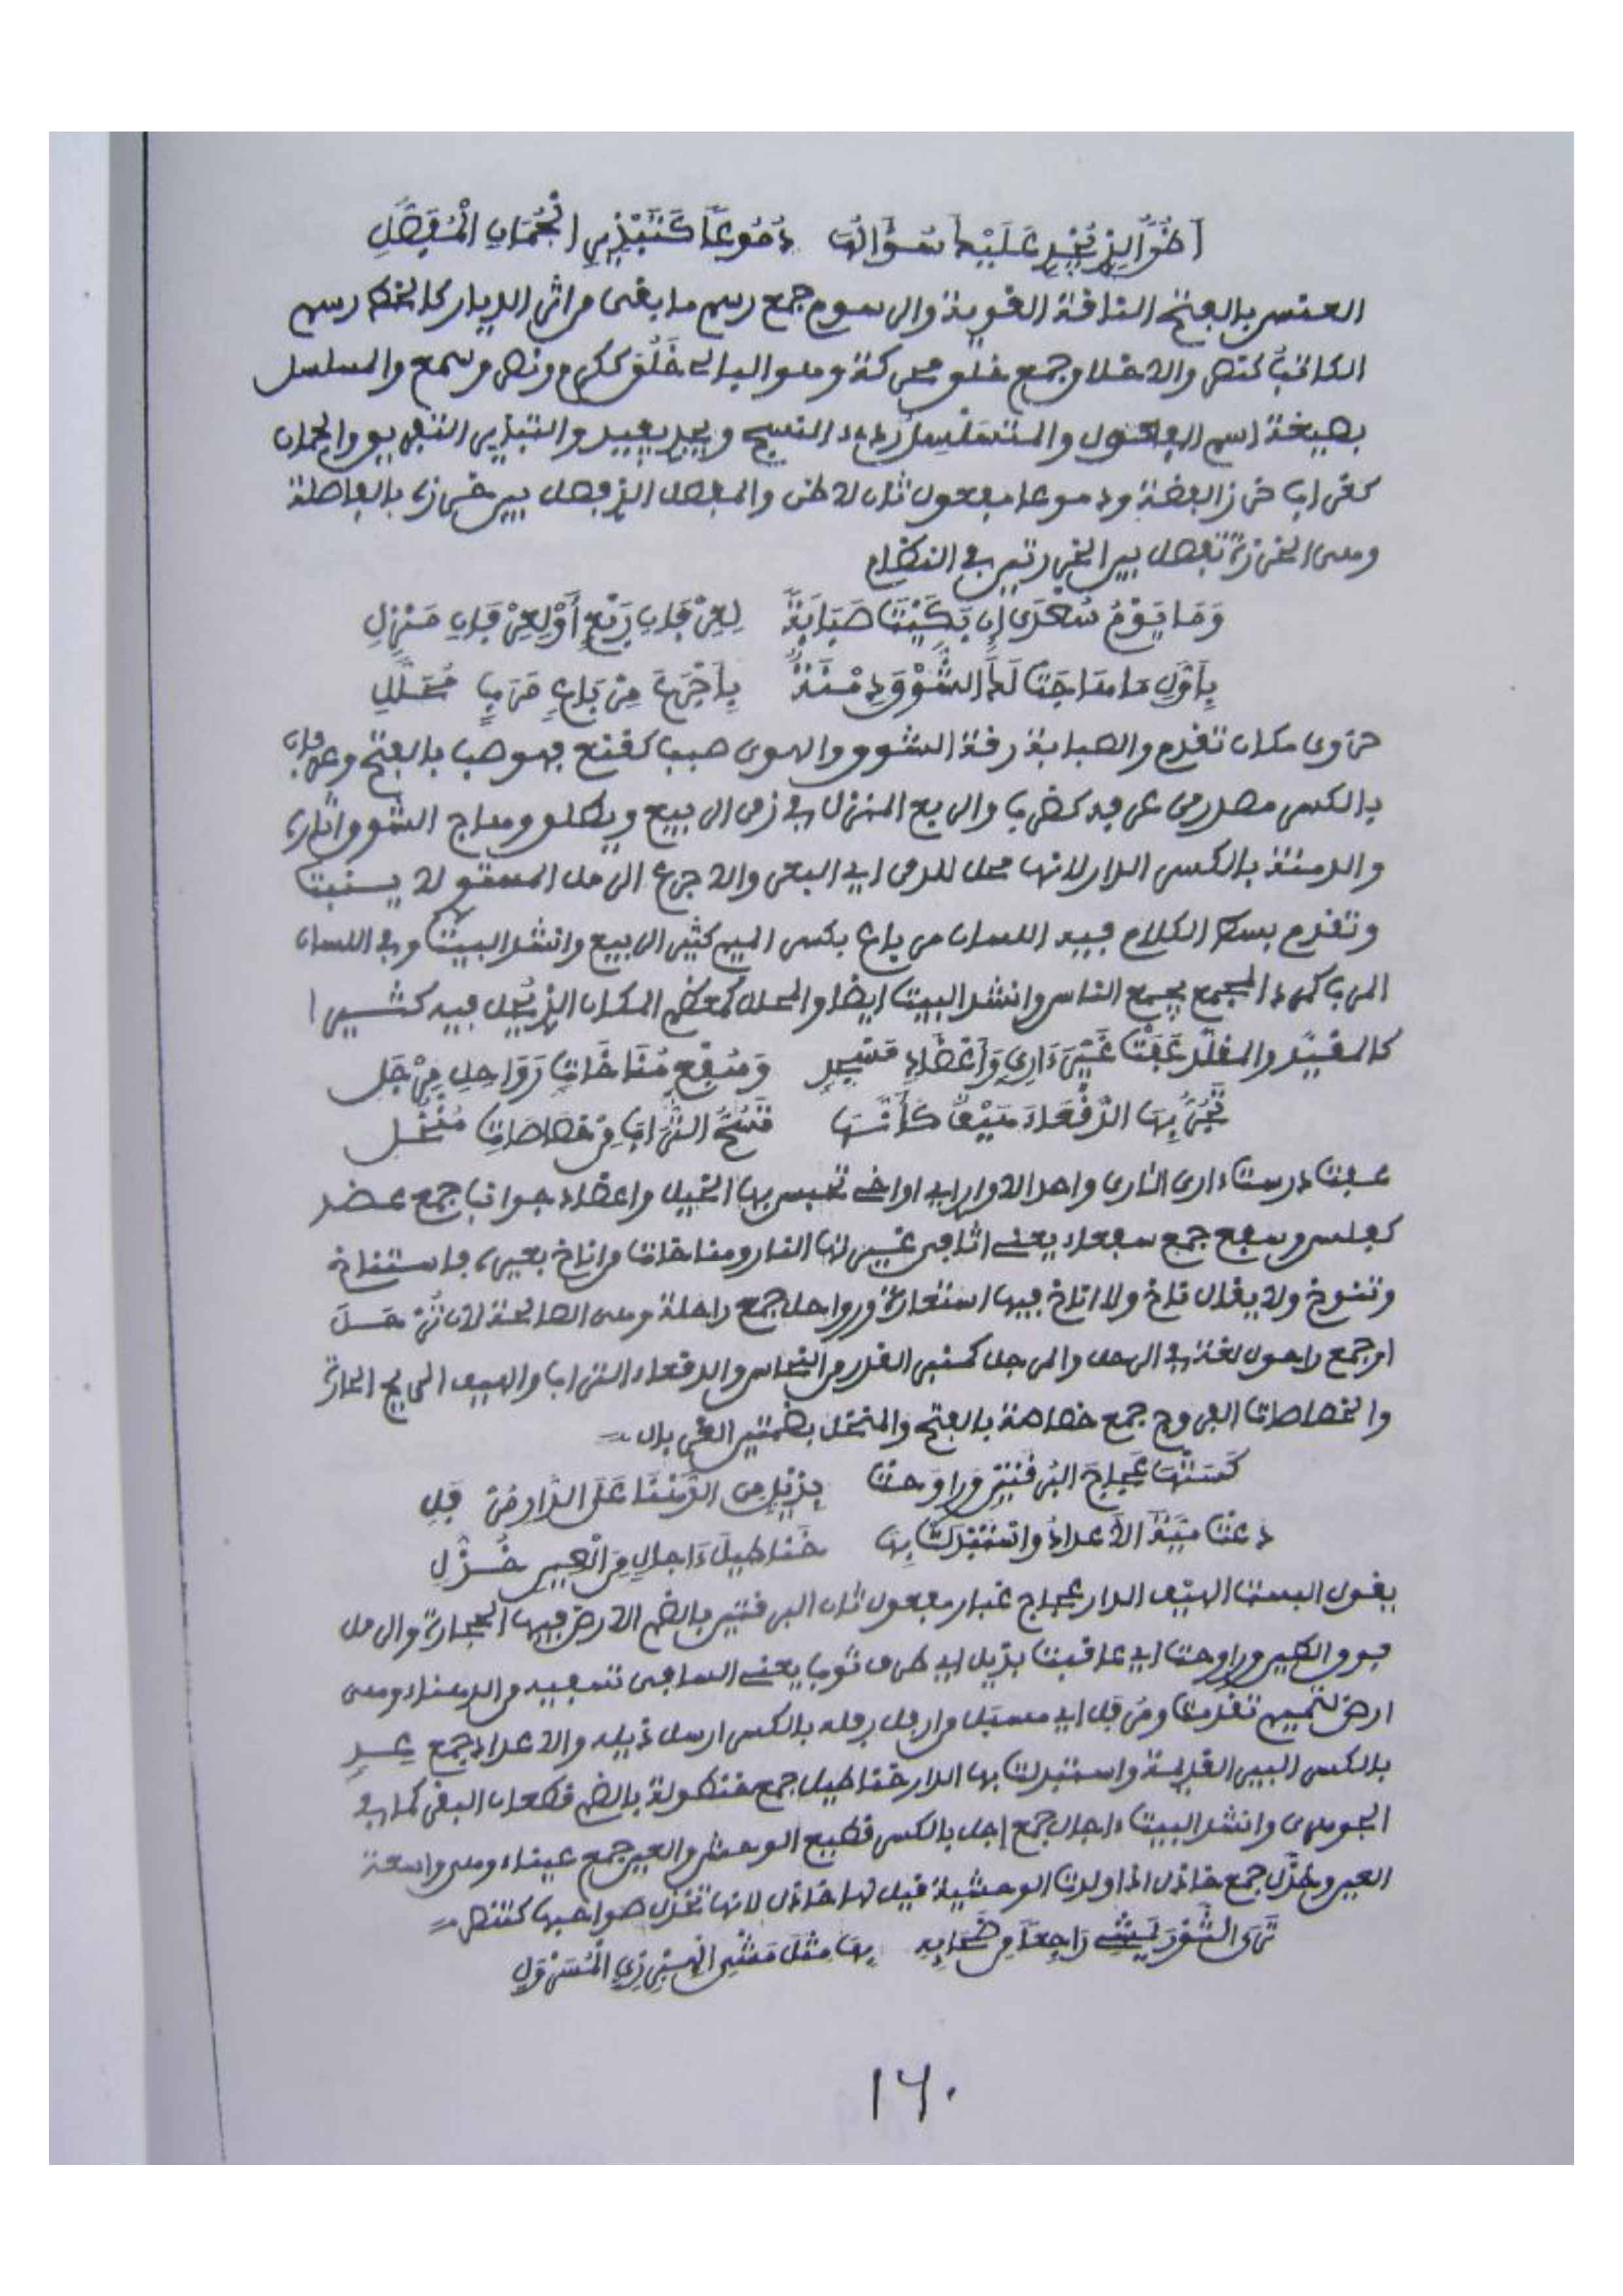 أَظُنُّ الذِي يُجْدِي عَلَيْكَ سُؤَالُهَا دُمُوعًا كَتَبْذِيرِ الْجُمَانِ الْمُفَصَّلِ
العنس بالفتح الناقة القوية والرسوم جمع رسم ما بقى من اثر الديار كالخط رسم
الكاتب كنصر والاخلاق جمع خلق محركة وهو البالي خَلُق ككرم ونصر وسمع والمسلسل
بصيغة اسم المفعول والمتسلسل ردىء النسج ويجدي يفيد والتبذير التفريق والجمان
كغراب خرز الفضة ودموعا مفعول ثان لاظن والمفصل الذي فصل بين خرزه بالفاصلة
وهى الخرزة تفصل بين الخرزتين في النظام
وَمَا يَوْمُ حُزْوَى إِن بَكَيْتَ صَبَابَةً لِعِرْفَانِ رَبْعٍ أَوْ لِعِرْفَانِ مَنْزِلِ
بِأَوَّلِ مَا هَاجَتْ لَكَ الشَّوْقَ دِمْنَةٌ بِأَجْرَعَ مِرْبَاعٍ مَرَبٍّ مُحَلَّلِ
حزوى مكان تقدم والصبابة رقة الشوق والهوى صبب كقنع فهو صب بالفتح وعرفان
بالكسر مصدر من عرفه كضرب والربع المنزل في زمن الربيع ويطلق وهاج الشوق اثاره
والدمنة بالكسر الدار لانها محل للدمن اي البعر والاجرع الرمل المستو لا ينبت
وتقدم بسط الكلام فيه اللسان مرباع بكسر الميم كثير الربيع وانشد البيت وفي اللسان
المرب كمرد المجمع يجمع الناس وانشد البيت ايضا والمحلل كمعظم المكان الذي يُحل فيه كثيرا
كالمقيد والمقلد عَفَتْ غَيْرَ ءَارِيٍّ وَأَعْضَادِ مَسْجِدٍ وَسُفْعٍ مُنَاخَاتٍ رَوَاحِلِ مِرْجَلِ
تَجُرُّ بِهَا الدَّقْعَاءَ هَيْفٌ كَأَنَّهَا تَسُحُّ التُّرَابَ مِنْ خَصَاصَاتِ مُنْخُلِ
عفت درست ءارى الارى واحد الاوارى اي اواخى تحبس بها الخيل واعضاد جوانب جمع عضد
كفلس وسفع جمع سفعاء يعني اثافى غير لونها النار ومناخات من اناخ بعيره فاستناخ
وتنوخ ولا يقال ناخ ولا اناخ فيها استعارة ورواحل جمع راحلة وهى الصالحة لان تُرْحَلَ
او جمع راحول لغة في الرحل والمرجل كمنبر القدر من النحاس والدقعاء التراب والهيف الريح الحارة
والخصاصات الفروج جمع خصاصة بالفتح والمنخل بضمتين الغربال
كَسَتْهَا عَجَاجَ البُرْقَتَيْنِ وَرَاوَحَتْ بِذَيْلٍ مِنَ الدَّهْنَا عَلَى الدَّارِ مُرْفَلِ
دعَتْ مَيَّةَ الأَعدادُ واسْتَبْدَلَتْ بِهَا خَنَاطِيلَ ءَاجَالٍ مِنَ الْعِينِ خُذَّلِ
يقول البست الهيف الدار عجاج غبار مفعول ثان البرقتين بالضم الارض فيها الحجارة والرمل
فوق الطين وراوحت اي عاقبت بذيل اي طرف ثوب يعني السافى تسفيه من الدهناء وهى
ارض لتميم تقدمت ومرفل اي مسبل وارفل رفله بالكسر ارسل ذيله والاعداد جمع عِد
بالكسر البير القديمة واستبدلت بها الدار خناطيل جمع خنطولة بالضم قطعان البقر كما في
الجوهرى وانشد البيت ءاجال جمع إجل بالكسر قطيع الوحش والعين جمع عيناء وهى واسعة
العين وخذَّل جمع خاذل اذا ولدت الوحشية قيل لها خاذل لانها تخذل صواحبها كتنصر
تَرَى الثَّوْرَ يَمْشِي رَاجِعًا مِنْ ضَحَائِهِ بِهَا مِثْلَ مَشْيِ الْهِبْرِزِيِّ الْمُسَرْوَلِ
١٦٠